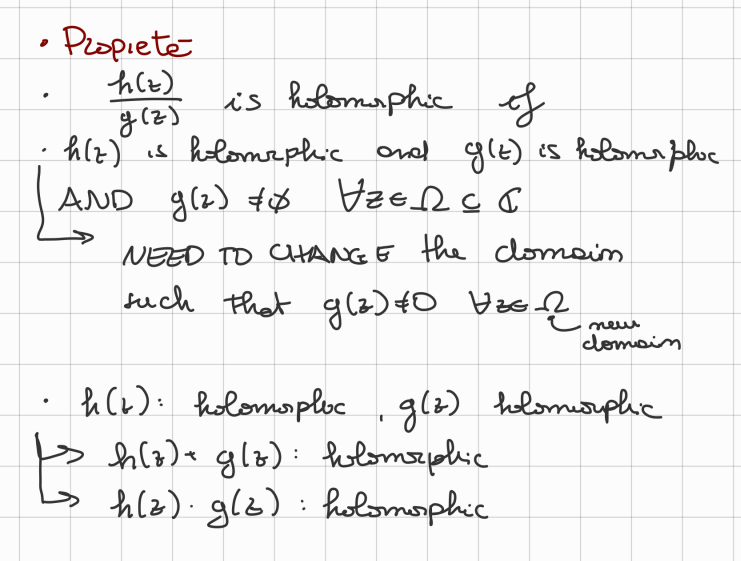 • Propietà
• h(z)/g(z) is holomorphic if
• h(z) is holomorphic and g(z) is holomorphic
AND g(z) ≠ ∅ ∀z ∈ Ω ⊆ ℂ
NEED TO CHANGE the domain
such that g(z) ≠ 0 ∀z ∈ Ω
new
domain
• h(z): holomorphic, g(z) holomorphic
↳ h(z) + g(z): holomorphic
↳ h(z) · g(z): holomorphic